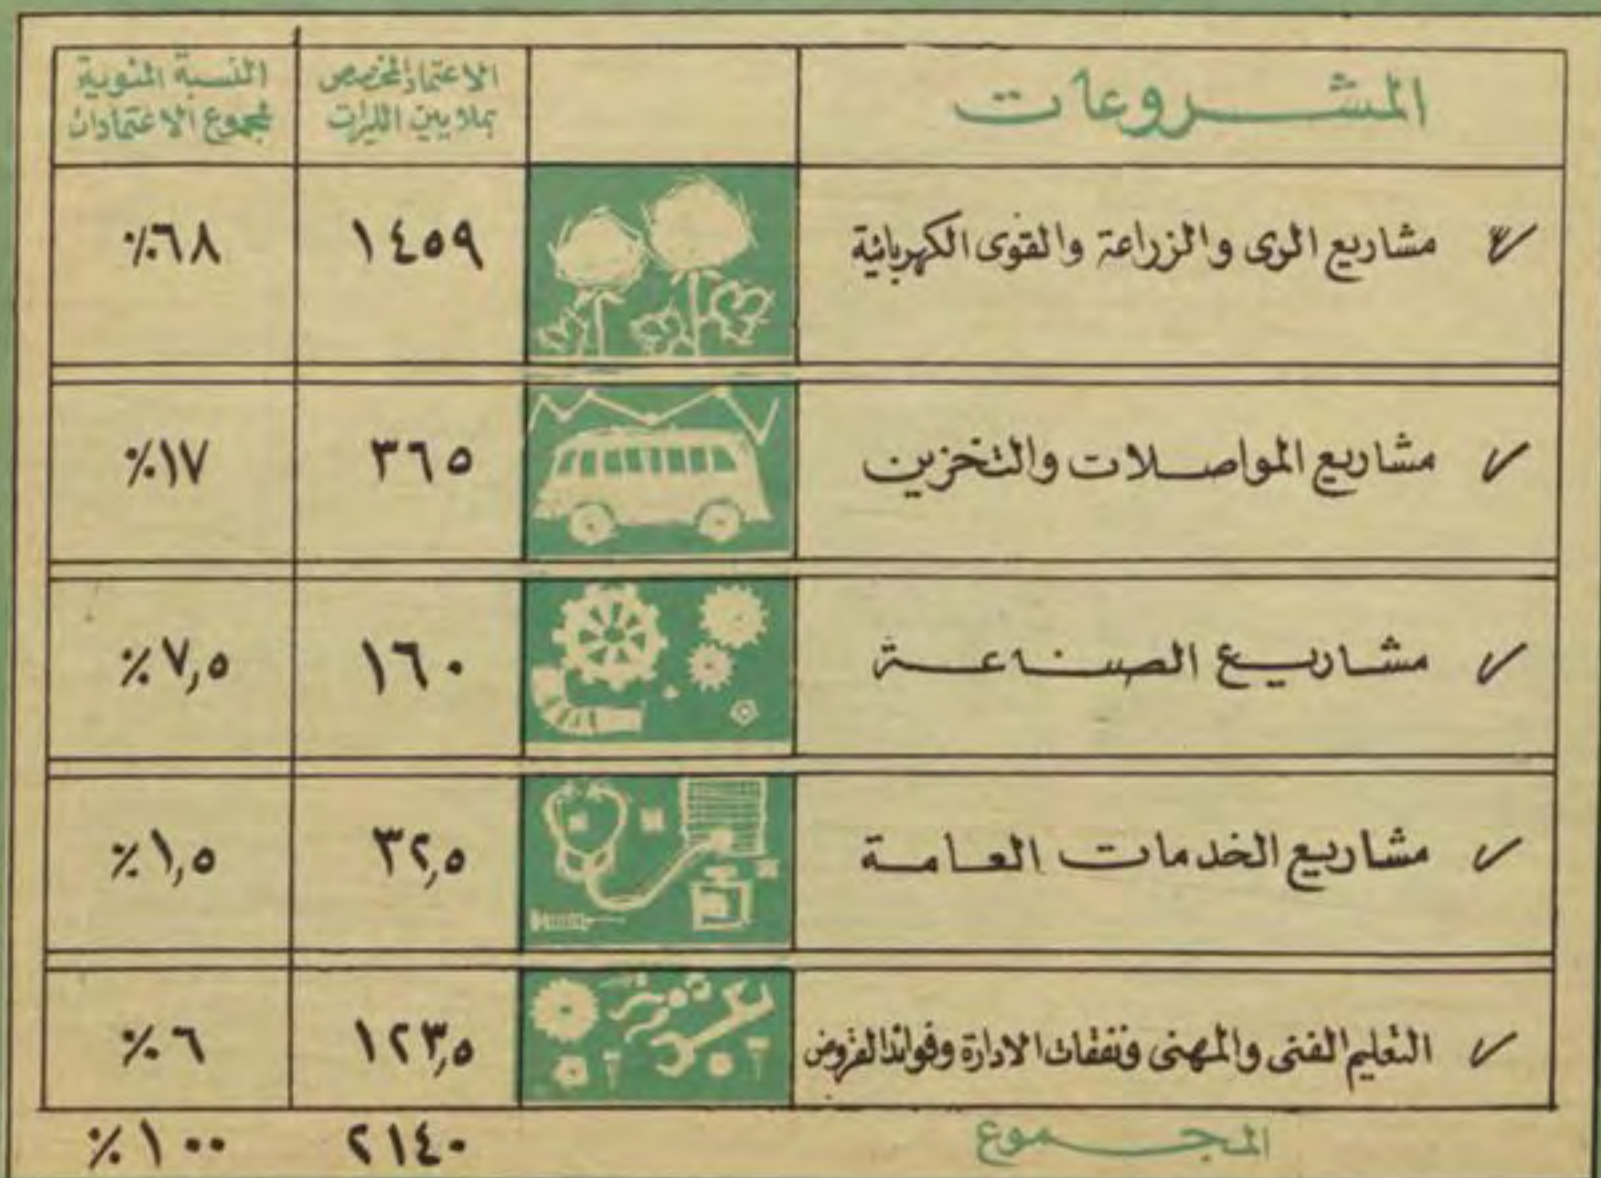 المشروعات
الاعتماد المخصص
بملايين الليرات
النسبة المئوية
لمجموع الاعتمادات
مشاريع الرى والزراعة والقوى الكهربائية ١٤٥٩ ٦٨٪
مشاريع المواصلات والتخزين ٣٦٥ ١٧٪
مشاريع الصناعة ١٦٠ ٧,٥٪
مشاريع الخدمات العامة ٣٢,٥ ١,٥٪
التعليم الفنى والمهنى ونفقات الادارة وفوائد القروض ١٢٣,٥ ٦٪
المجموع ٢١٤٠ ١٠٠٪